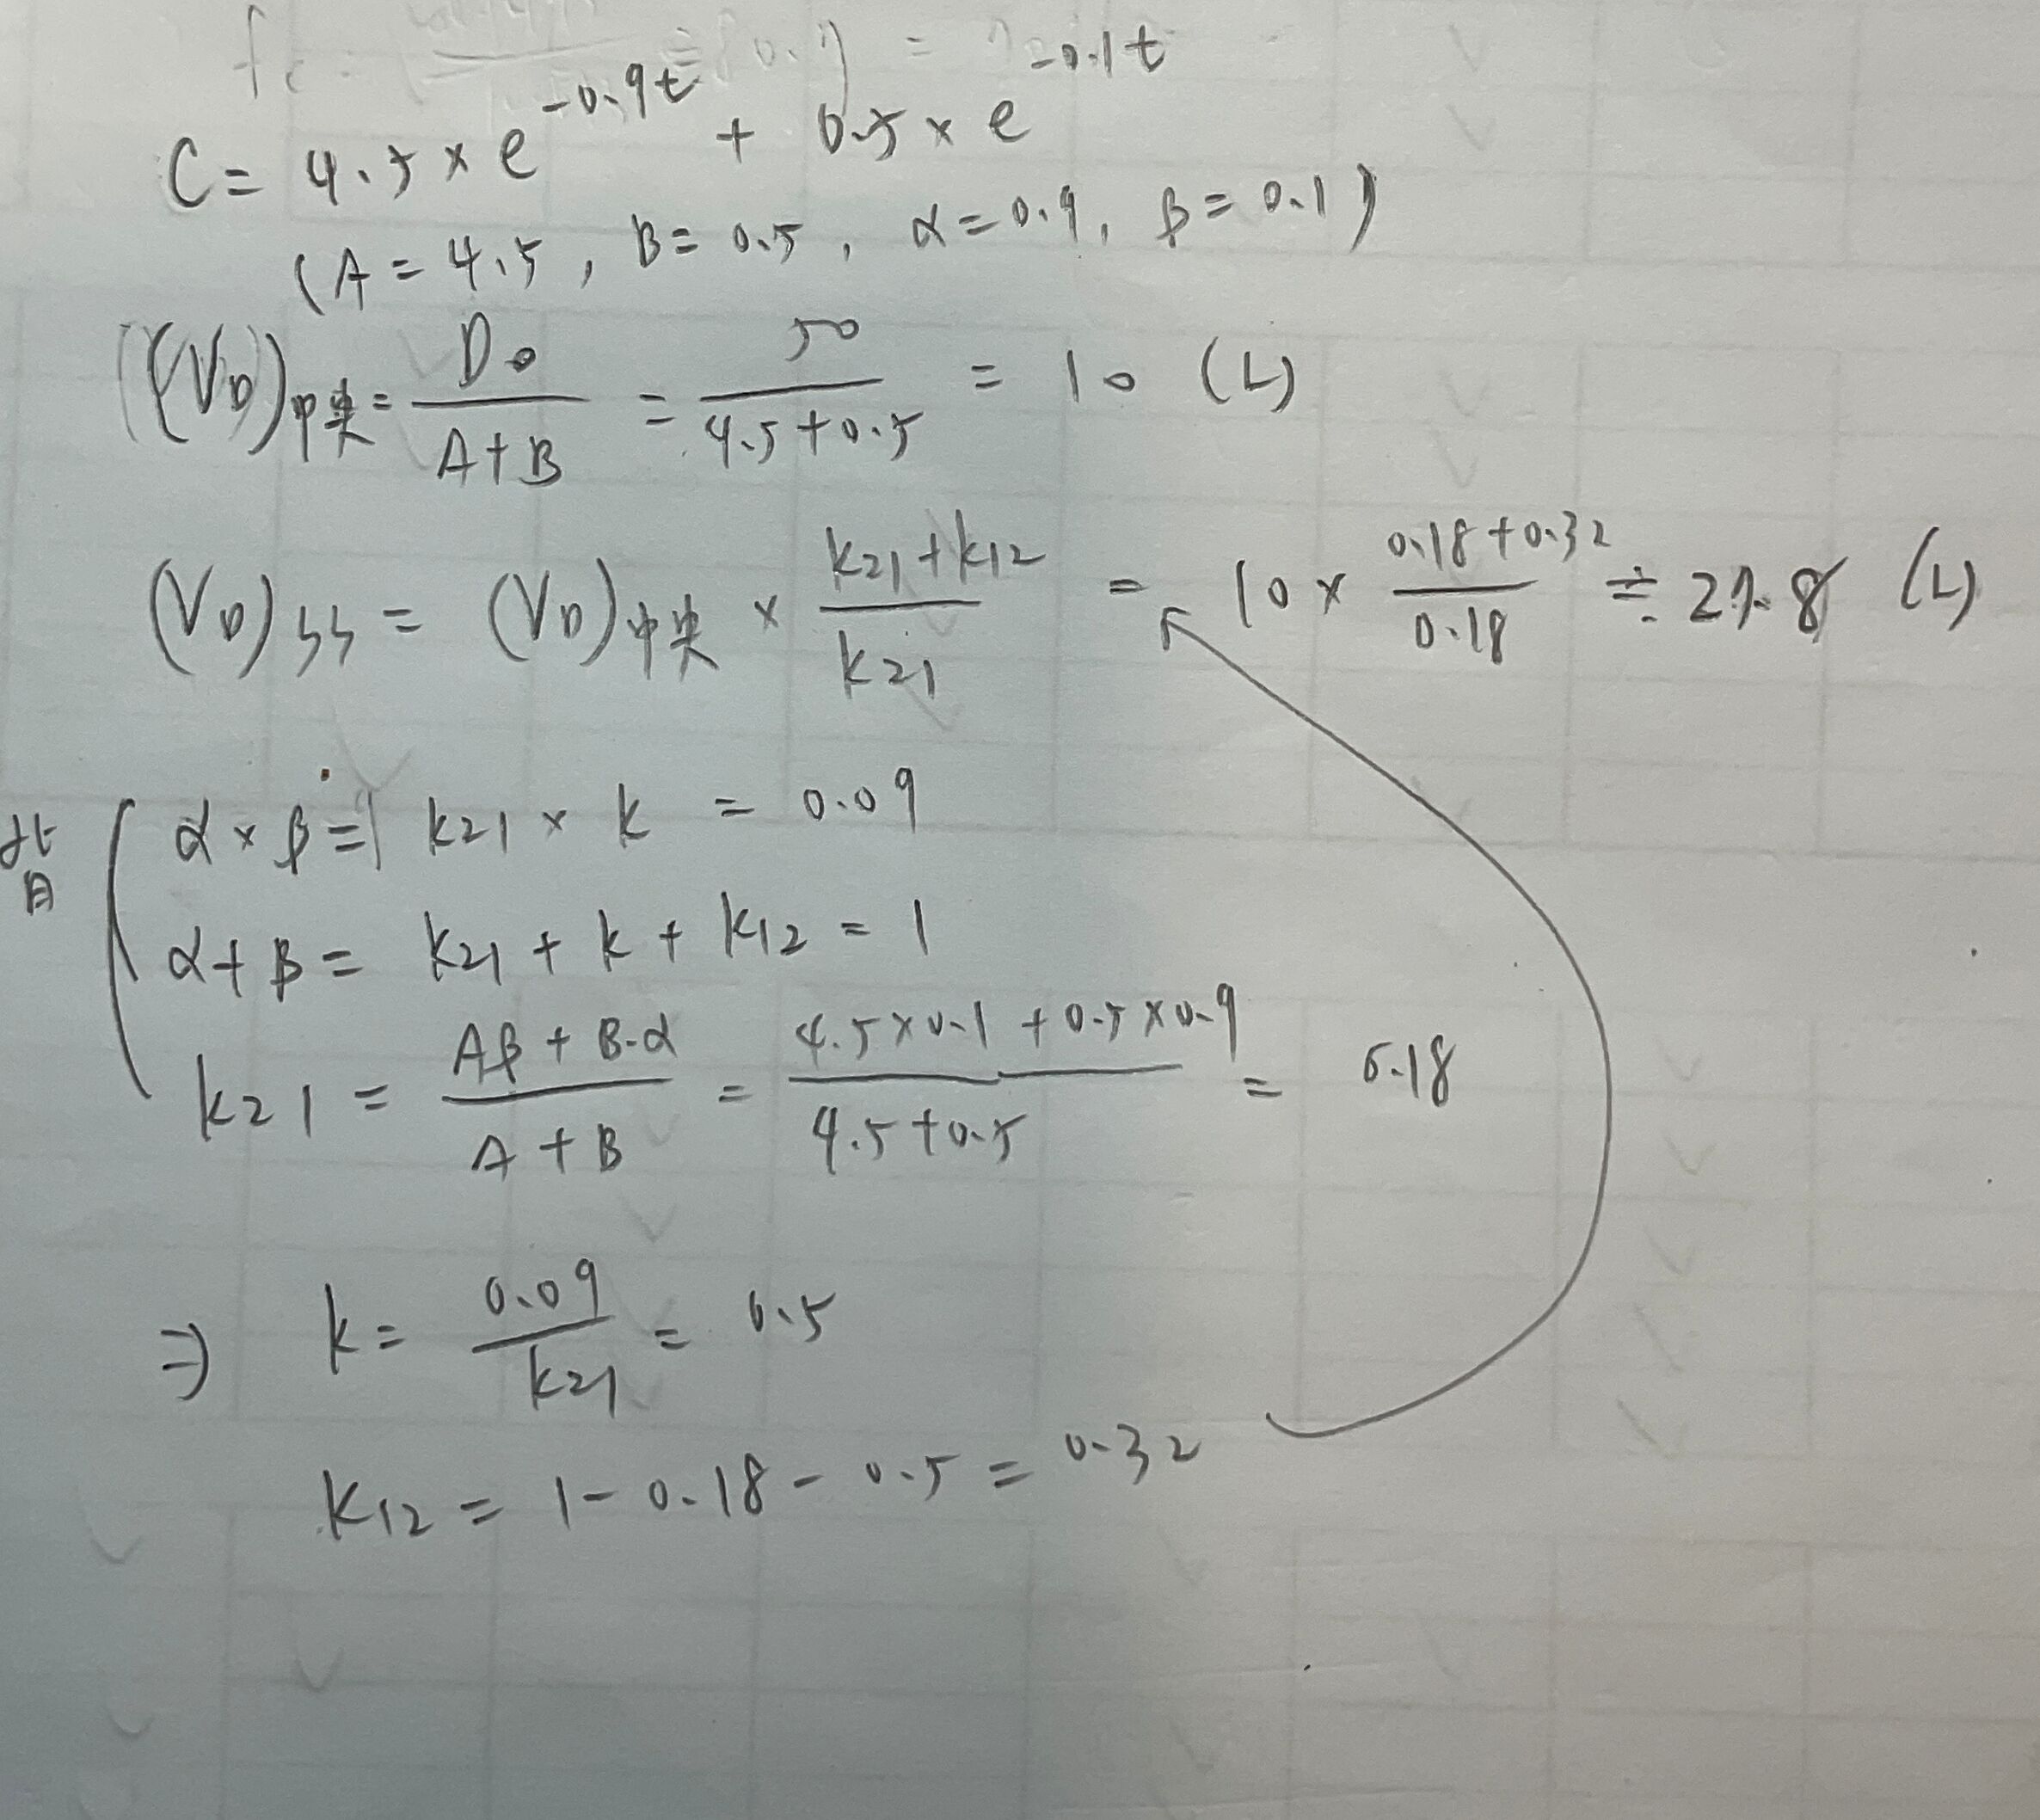 C = 4.5 × e^{-0.9t} + 0.5 × e^{-0.1t}
(A = 4.5, B = 0.5, α = 0.9, β = 0.1)
(V_D)中央 = D₀/(A+B) = 50/(4.5+0.5) = 10 (L)
(V_D)ss = (V_D)中央 × (k21+k12)/k21 = 10 × (0.18+0.32)/0.18 ≒ 27.8 (L)
皆
α × β = k21 × k = 0.09
α + β = k21 + k + k12 = 1
k21 = (Aβ + B·α)/(A + B) = (4.5×0.1 + 0.5×0.9)/(4.5+0.5) = 0.18
⇒ k = 0.09/k21 = 0.5
k12 = 1 - 0.18 - 0.5 = 0.32